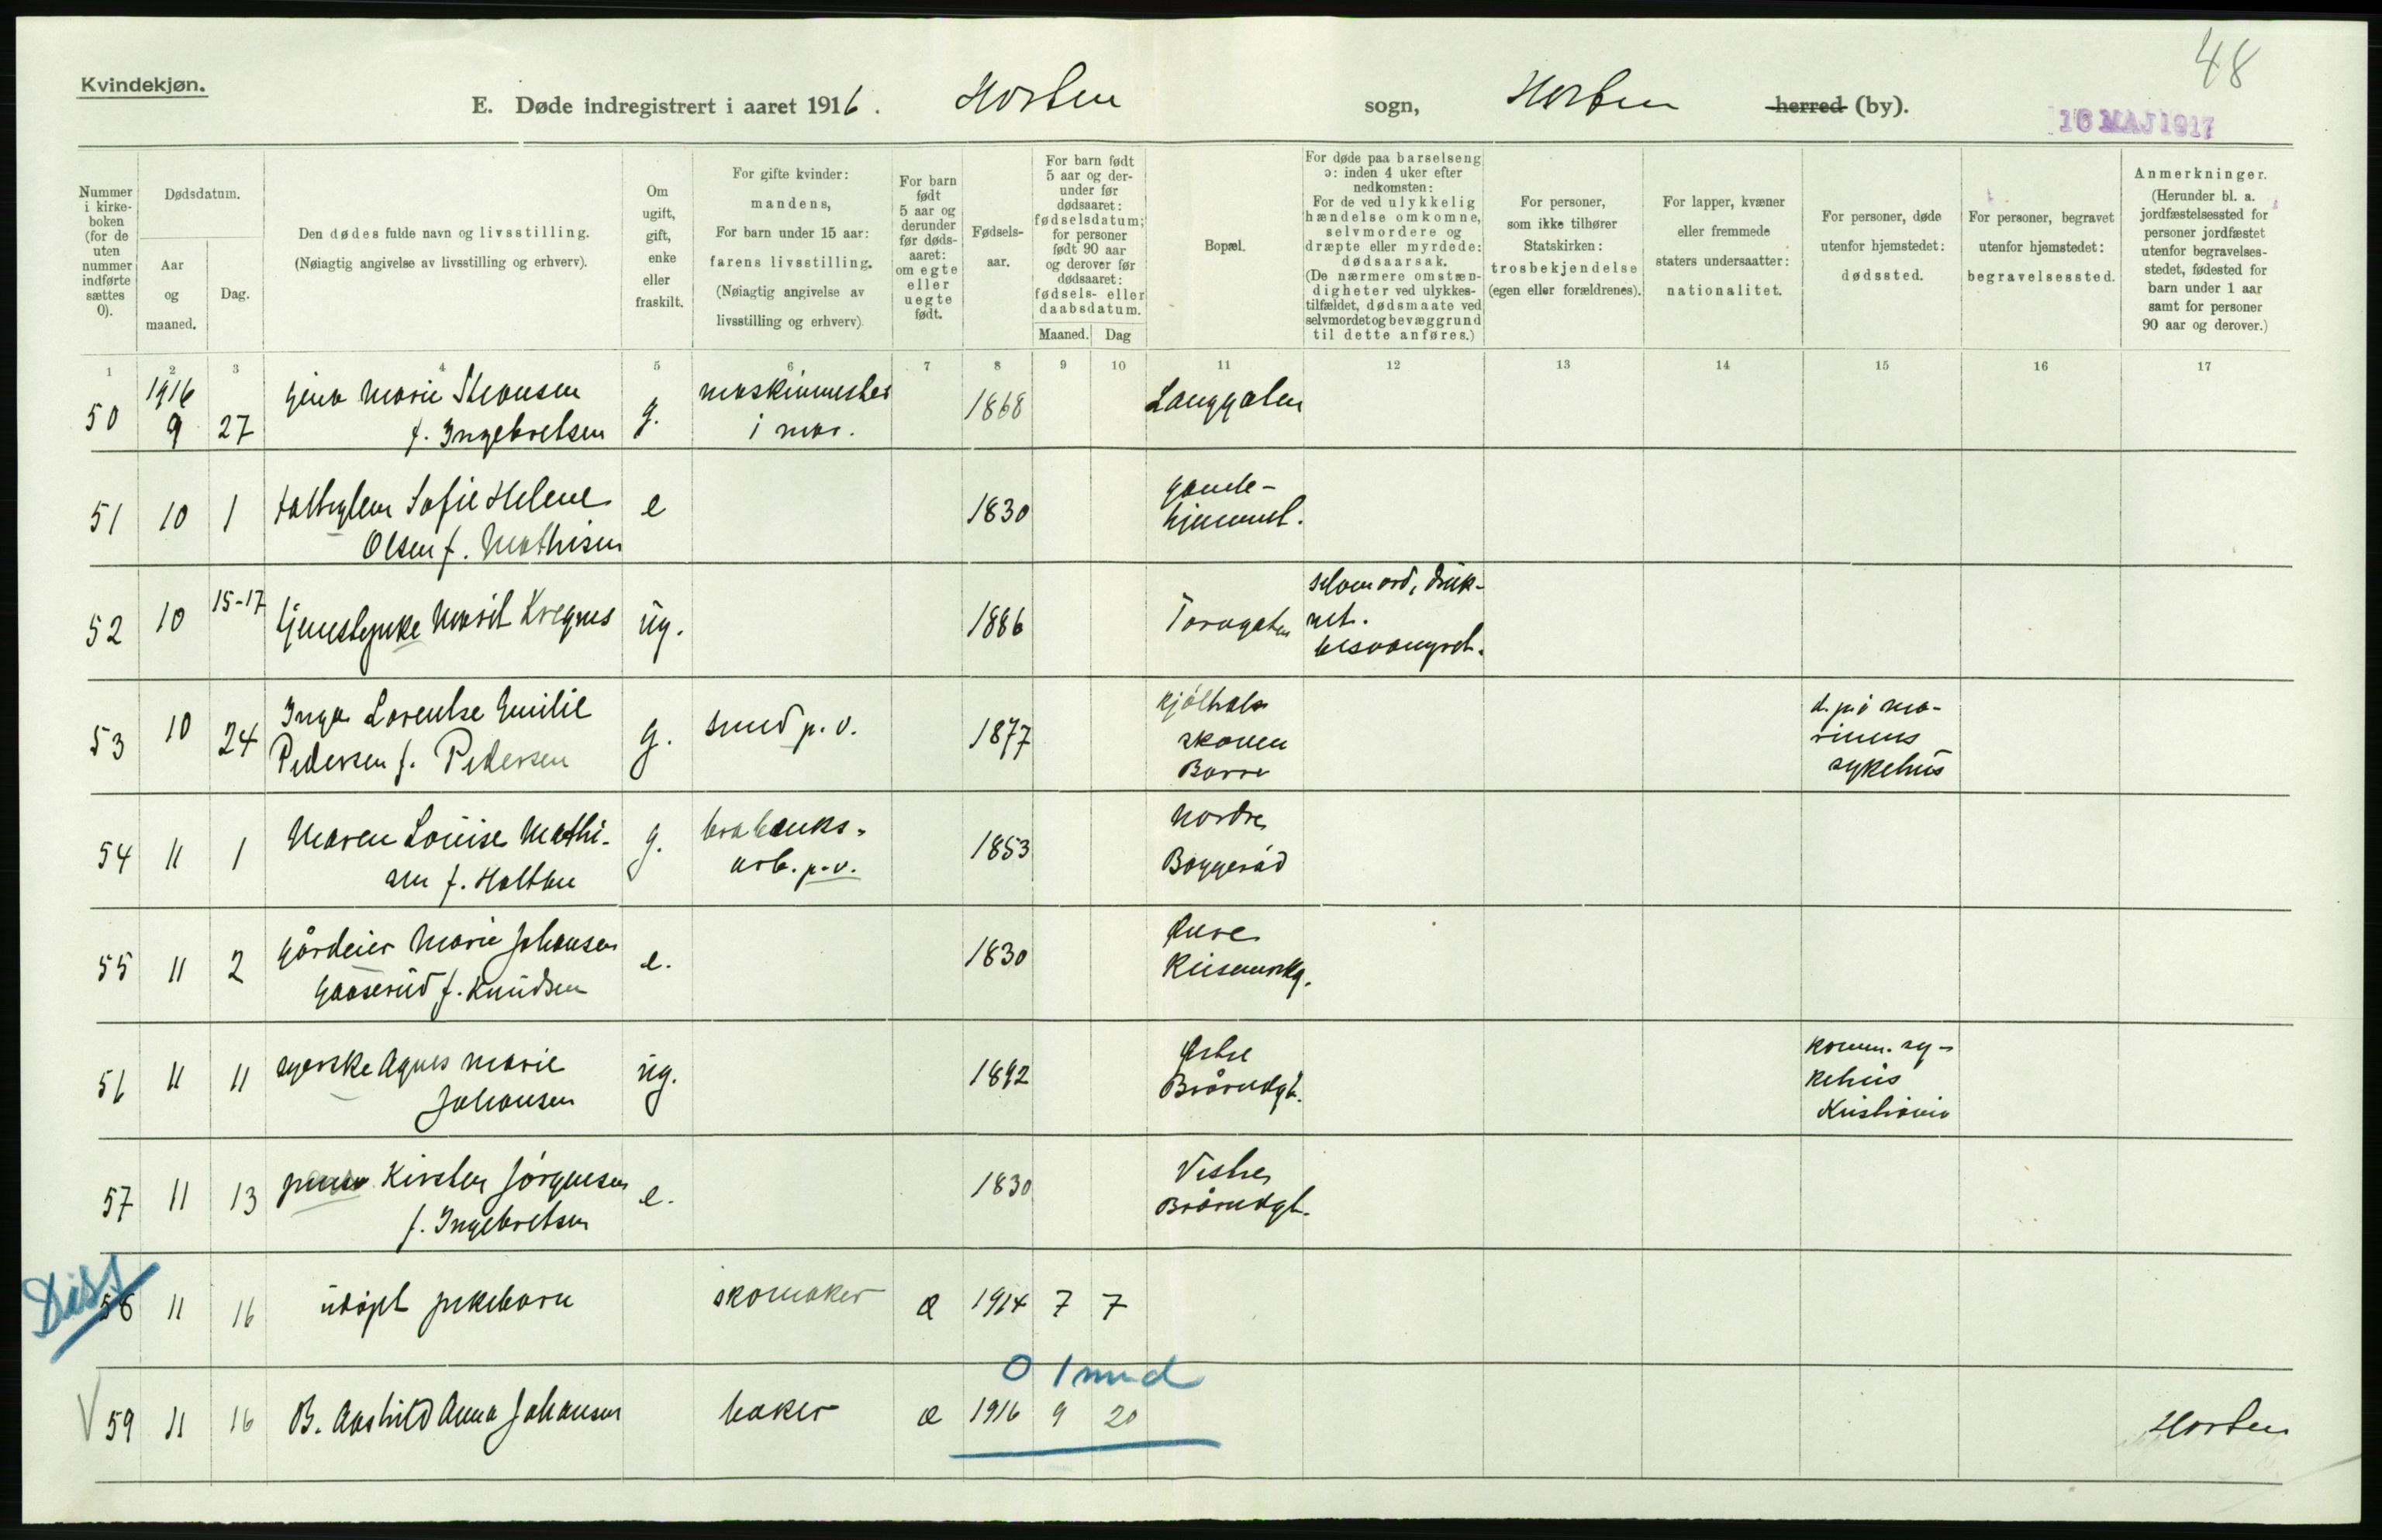 48
Kvindekjøn.
E. Døde indregistrert i aaret 1916. Horten sogn, Horten herred (by).
16 MAJ 1917
Nummer i kirke-boken (for de uten nummer indførte sættes 0).
Dødsdatum.
Aar og maaned.
Dag.
Den dødes fulde navn og livsstilling.
(Nøiagtig angivelse av livsstilling og erhverv).
Om ugift, gift, enke eller fraskilt.
For gifte kvinder: mandens,
For barn under 15 aar: farens livsstilling.
(Nøiagtig angivelse av livsstilling og erhverv)
For barn født 5 aar og derunder før døds-aaret: om egte eller uegte født.
Fødsels-aar.
For barn født 5 aar og der-under før dødsaaret: fødselsdatum; for personer født 90 aar og derover før dødsaaret: fødsels- eller daabsdatum.
Maaned. Dag
Bopæl.
For døde paa barselseng ɔ: inden 4 uker efter nedkomsten:
For de ved ulykkelig hændelse omkomne, selvmordere og dræpte eller myrdede: dødsaarsak.
(De nærmere omstæn-digheter ved ulykkes-tilfældet, dødsmaate ved selvmordet og bevæggrund til dette anføres.)
For personer, som ikke tilhører Statskirken: trosbekjendelse (egen eller forældrenes).
For lapper, kvæner eller fremmede staters undersaatter: nationalitet.
For personer, døde utenfor hjemstedet: dødssted.
For personer, begravet utenfor hjemstedet: begravelsessted.
Anmerkninger.
(Herunder bl. a. jordfæstelsessted for personer jordfæstet utenfor begravelses-stedet, fødested for barn under 1 aar samt for personer 90 aar og derover.)
1 2 3 4 5 6 7 8 9 10 11 12 13 14 15 16 17
1916
50 9 27 Gina Marie
f. Ingebretsen g. maskinmester
i mar. 1868 Langgaten
51 10 1 Sofie Helene
Olsen f. Mathisen e 1830 Gamle-
hjemmet.
52 10 15-17 tjenestepike Marit ug. 1886 Torvgaten selvmord, druk-
net.
besvangret.
53 10 24 Inga Lorentse Emilie
Pedersen f. Pedersen g. smed p. v. 1877
skauen
Borre d. på ma-
rinens
sykehus
54 11 1 Maren Louise Mathi-
sen f. Holtan g.
arb. p. v. 1853 Nordre
Baggerød
55 11 2 Gårdeier Marie Johansen
f. Knudsen e. 1830 Øvre
56 11 11 syerske Agnes Marie
Johansen ug. 1892 Østre
Brårudgt. komm. sy-
kehus
Kristiania
57 11 13 Kirsten Jørgensen
f. Ingebretsen e. 1830 Vestre
Brårudgt.
Diss
58 11 16 udøpt pikebarn skomaker æ 1914 7 7
0 1 mnd
V 59 11 16 B. Aashild Anna Johansen baker æ 1916 9 20 Horten